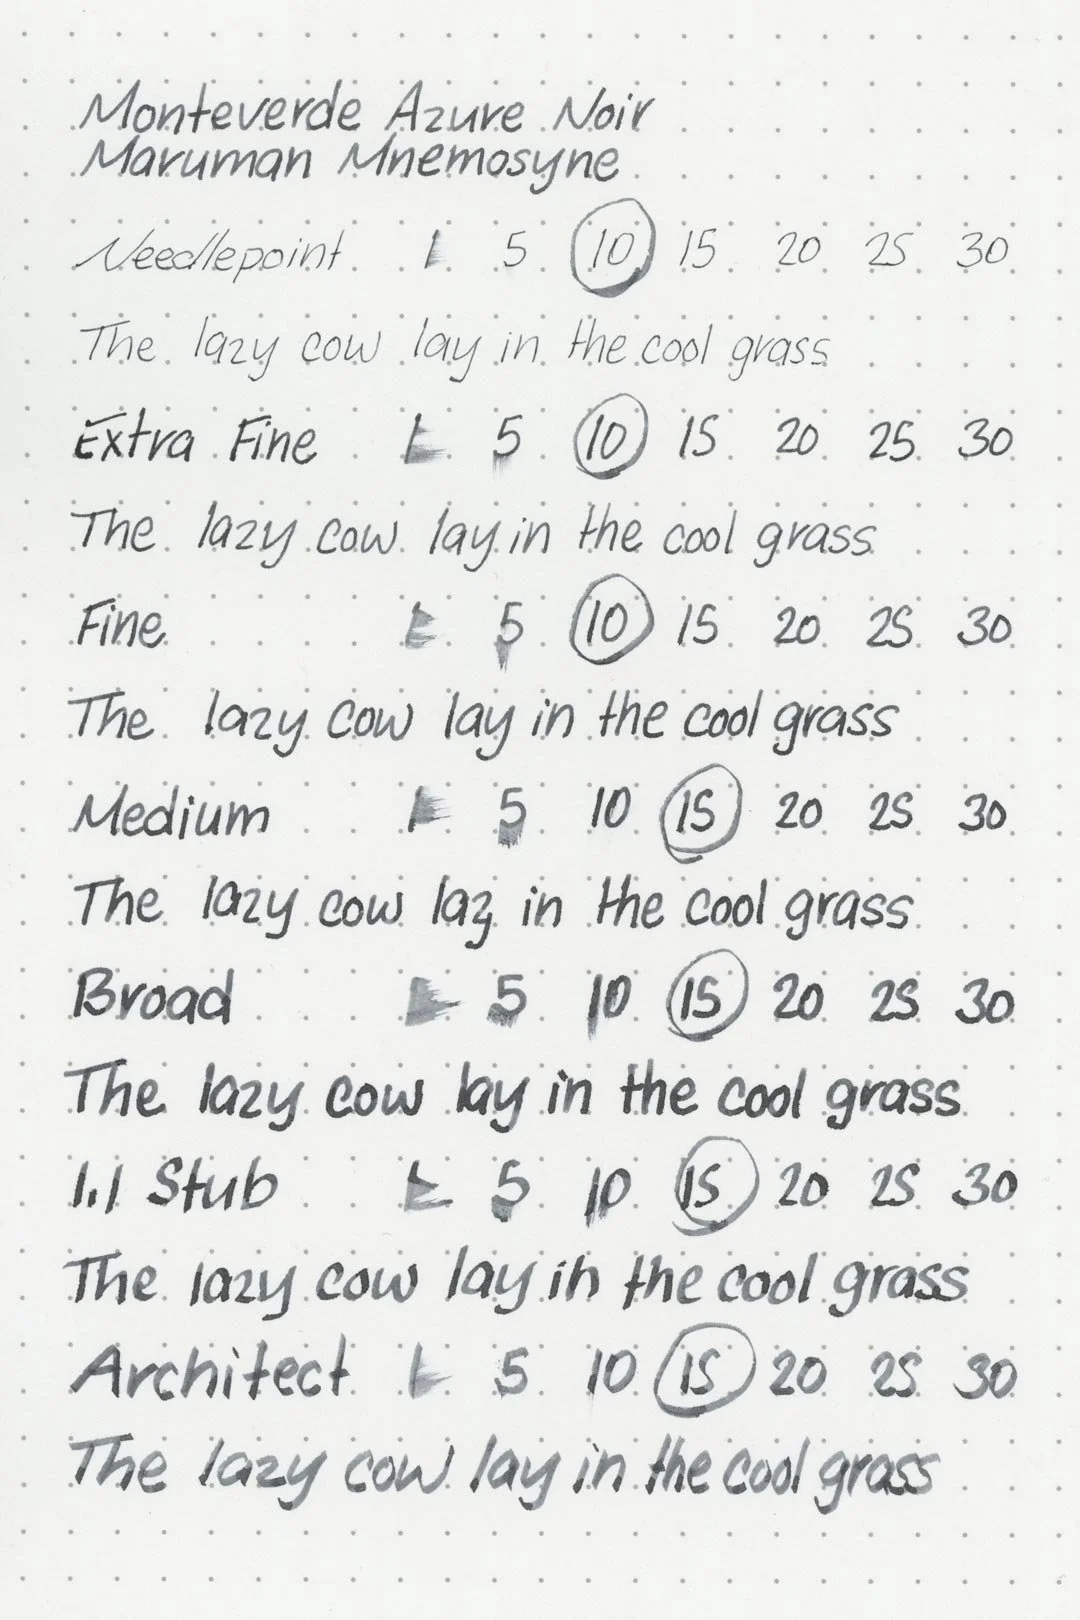 Monteverde Azure Noir
Maruman Mnemosyne
Needlepoint 1 5 10 15 20 25 30
The lazy cow lay in the cool grass
Extra Fine 1 5 10 15 20 25 30
The lazy cow lay in the cool grass
Fine 1 5 10 15 20 25 30
The lazy cow lay in the cool grass
Medium 1 5 10 15 20 25 30
The lazy cow laz in the cool grass
Broad 1 5 10 15 20 25 30
The lazy cow lay in the cool grass
1.1 Stub 1 5 10 15 20 25 30
The lazy cow lay in the cool grass
Architect 1 5 10 15 20 25 30
The lazy cow lay in the cool grass